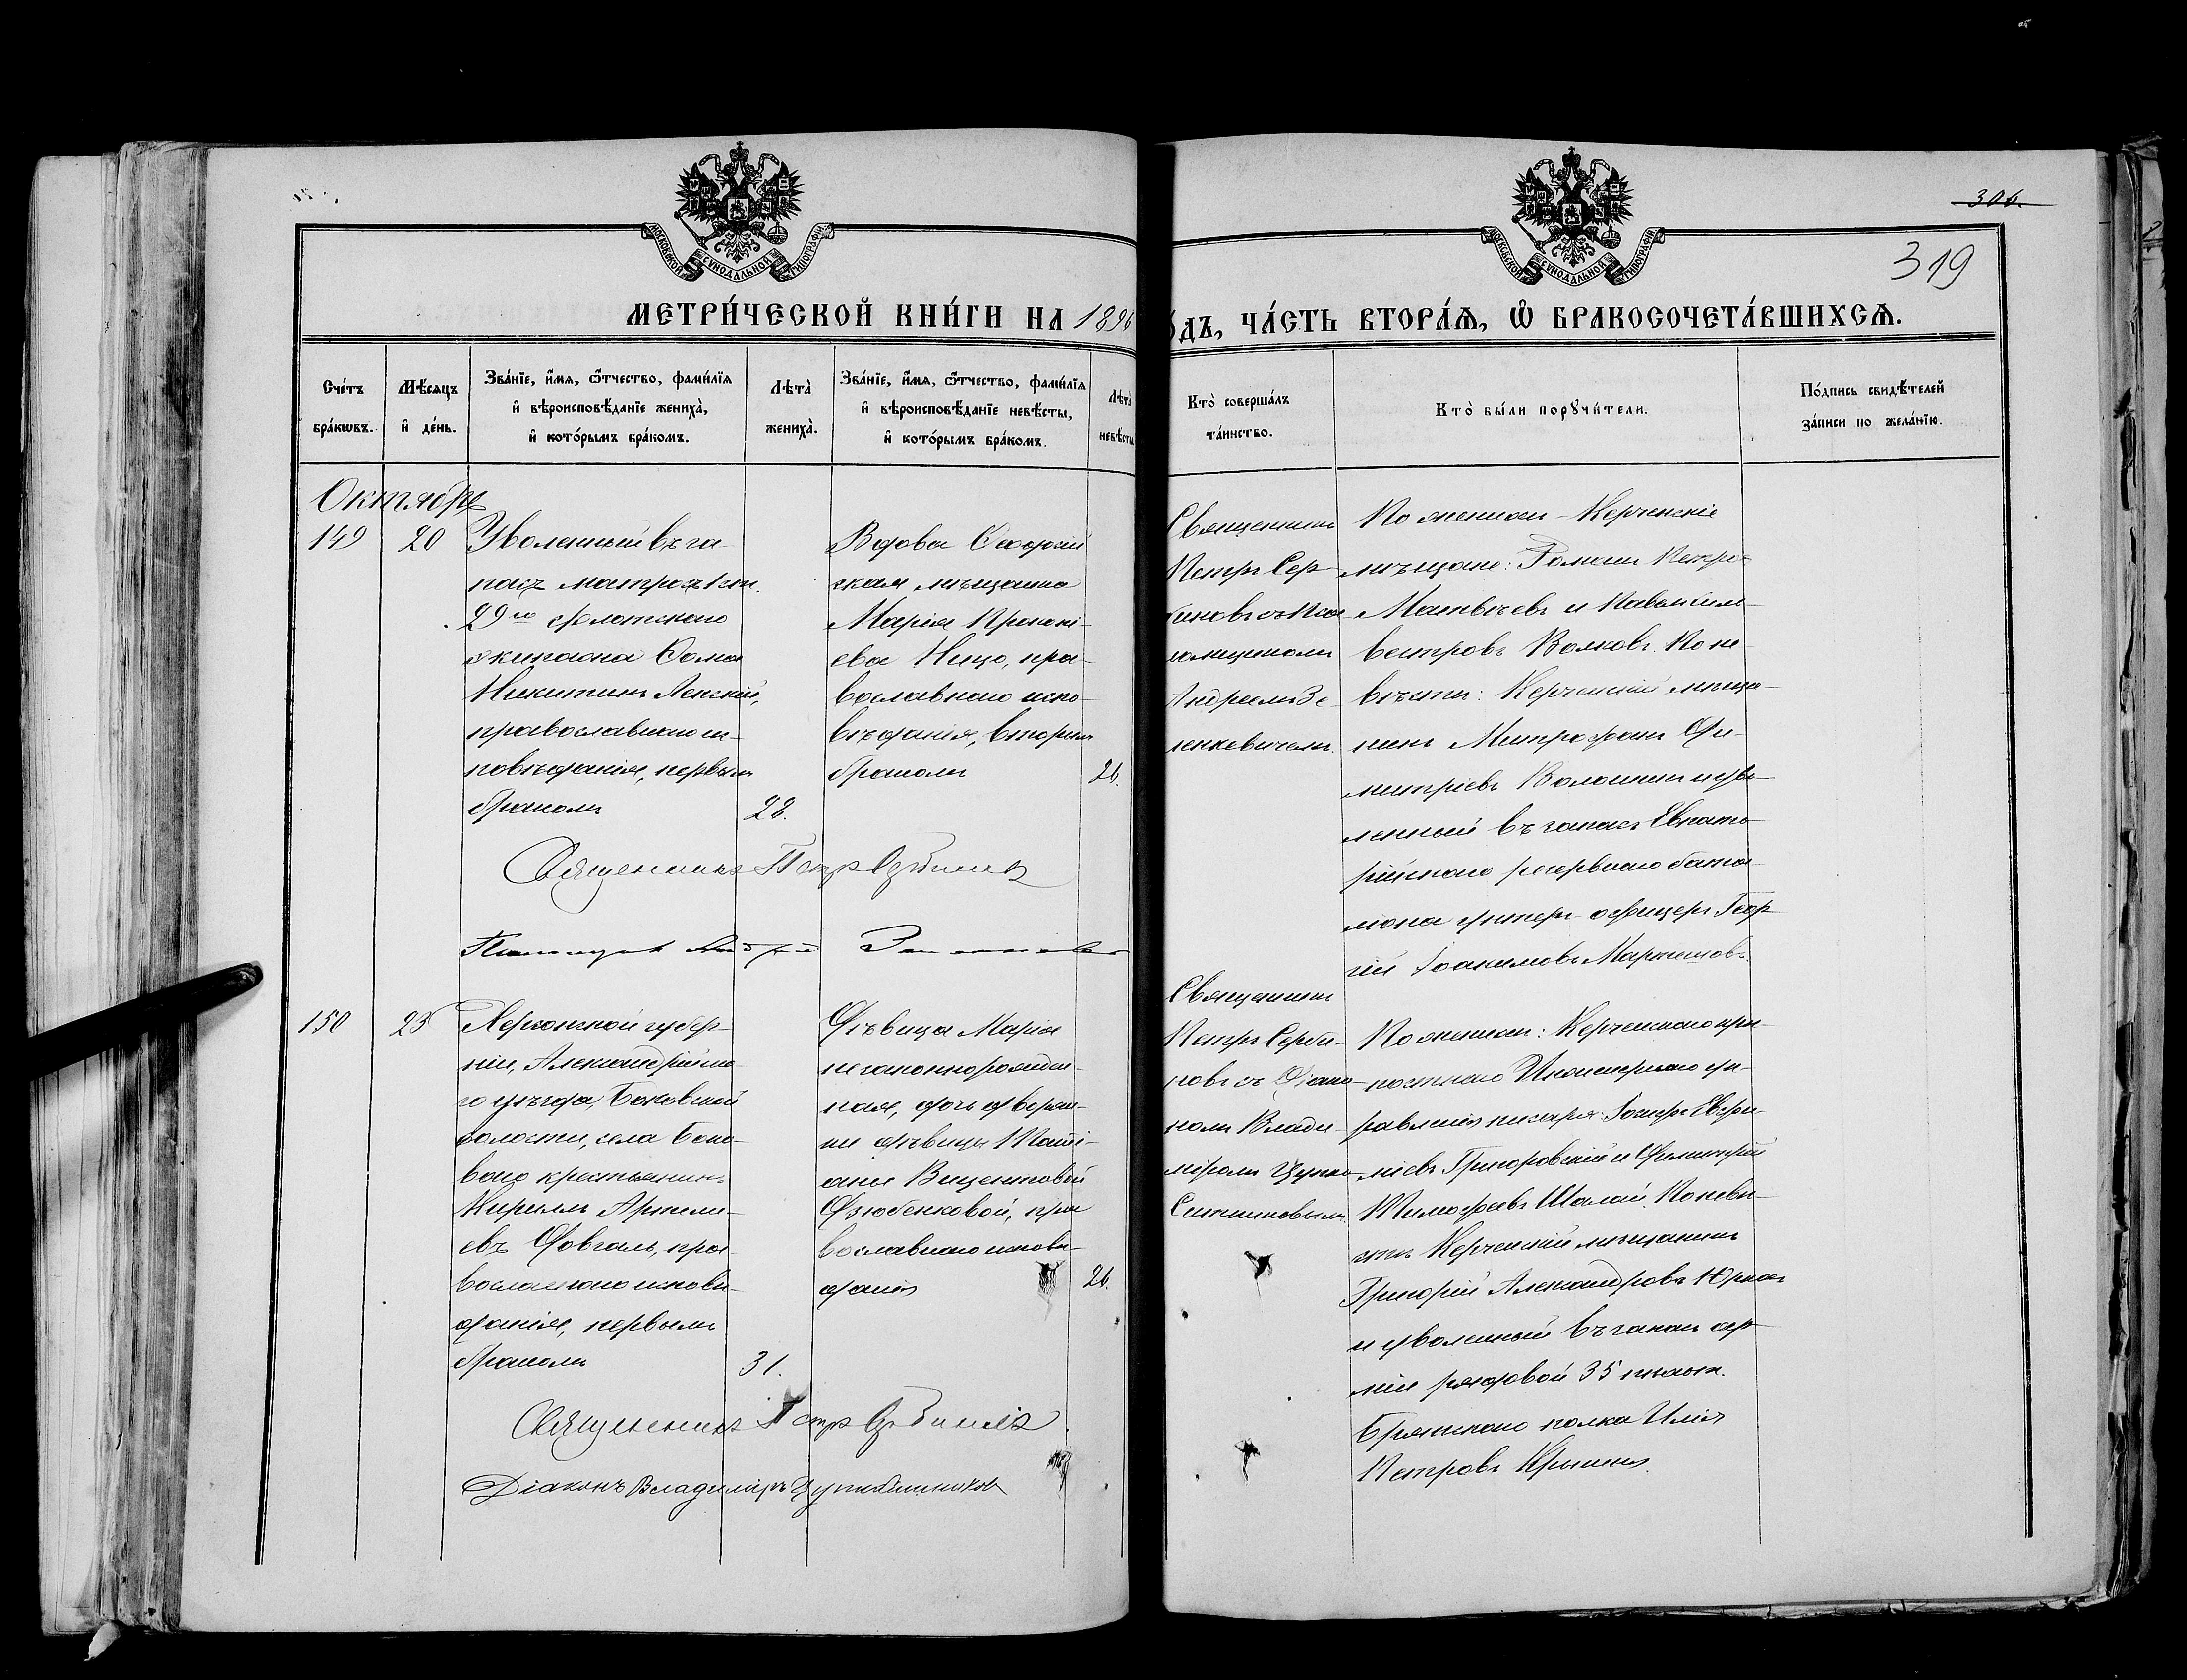 306.
319
МОСКОВСКОЙ СѴНОДАЛЬНОЙ ТИПОГРАФІИ
МОСКОВСКОЙ СѴНОДАЛЬНОЙ ТИПОГРАФІИ
МЕТРИ́ЧЕСКОЙ КНИ́ГИ НА 1896
О́ДЪ, ЧА́СТЬ ВТОРА́Ѧ, Ѽ БРАКОСОЧЕТА́ВШИХСѦ.
Сче́тъ
бра́кѡвъ.
Мѣ́сѧцъ
и҆ де́нь.
Зва́нїе, и҆́мѧ, ѻ҆́тчество, фами́лїѧ
и҆ вѣроисповѣ́данїе жениха̀,
и҆ кото́рымъ бра́комъ.
Лѣта̀
жениха̀.
Зва́нїе, и҆́мѧ, ѻ҆́тчество, фами́лїѧ
и҆ вѣроисповѣ́данїе невѣ́сты,
и҆ кото́рымъ бра́комъ.
Лѣта̀
невѣ́сты
Кто̀ соверша́лъ
та́инство.
Кто̀ бы́ли порꙋчи́тели.
По́дпись свидѣ́телей
за́писи по жела́нїю.
Октябрь
149
20
Уволенный въ за-
пасъ матросъ 1 ст.
29го флотскаго
экипажа Фома
Никитинъ Ленскій,
православнаго ис-
повѣданія, первымъ
бракомъ
28.
Вдова Феодосій
ская мѣщанка
Марія Прокопі-
ева Ницо, пра-
вославнаго испо-
вѣданія, вторымъ
бракомъ
26.
Священникъ
Петръ Сер-
биновъ съ Пса
ломщикомъ
Андреемъ Зе-
ленкевичемъ.
По женихѣ - Керченскіе
мѣщане: Романъ Петровъ
Матвѣевъ и Павелъ Силь-
вестровъ Волковъ. По не-
вѣстѣ: Керченскій мѣща-
нинъ Митрофанъ Ди-
митріевъ Волошинъ и уво-
ленный въ запасъ Евпато-
рійскаго резервнаго бата-
ліона унтеръ-офицеръ Геор-
гій Іоакимовъ
Священникъ Петръ Сербиновъ
Псаломщикъ Андрей
150
23
Херсонской губер-
ніи, Александрійска-
го уѣзда, Боковской
волости, села Боко-
ваго крестьянинъ
Кириллъ Артемі-
евъ Довгаль, пра-
вославнаго исповѣ-
данія, первымъ
бракомъ
31.
Дѣвица Марія
незаконнорожден-
ная, дочь дворян-
ки дѣвицы Таті-
аны Викентовой
Дзюбенковой, пра
вославнаго исповѣ-
данія
26.
Священникъ
Петръ Серби-
новъ съ Діако-
номъ Влади-
міромъ Цупко-
Ситниковымъ.
По женихѣ: Керченскаго крѣ-
постнаго Инженернаго уп-
равленія писаря: Іосифъ Евфи-
міевъ Григоровскій и Димитрій
Тимофеевъ Шалай. По невѣ-
стѣ Керченскій мѣщанинъ
Григорій Александровъ
и уволенный въ запасъ ар-
міи рядовой 35 пѣхотн.
Брянскаго полка Илія
Петровъ
Священникъ Петръ Сербиновъ
Діаконъ Владиміръ Цупко-Ситниковъ